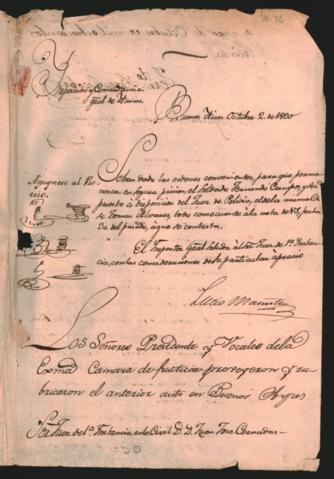 Inspeccion y Comandancia
gral de Armas
Buenos Ayres Octubre 2. de 1830
Agreguese al Pro
ceso.
Se han dado las ordenes convenientes, para que perma-
nesca en segura prision, el Soldado Fernando Campos, y
puesto a disposicion del Juez de Policia, el de la misma
Tomas Alvarez, todo consecuente a la nota de V.S. fecha
del pasado, que se contexta.
El Inspector Gral. saluda al Sor. Juez de 1a. Instan-
cia, con las consideraciones de su particular aprecio
Lucio Mansilla
Los Señores Presidente y Vocales de la
Exma. Camara de Justicia proveyeron y ru-
bricaron el anterior auto en Buenos Ayres
Sor. Juez de 1a. Instancia en lo Civil D. D. Juan Jose Cernadas